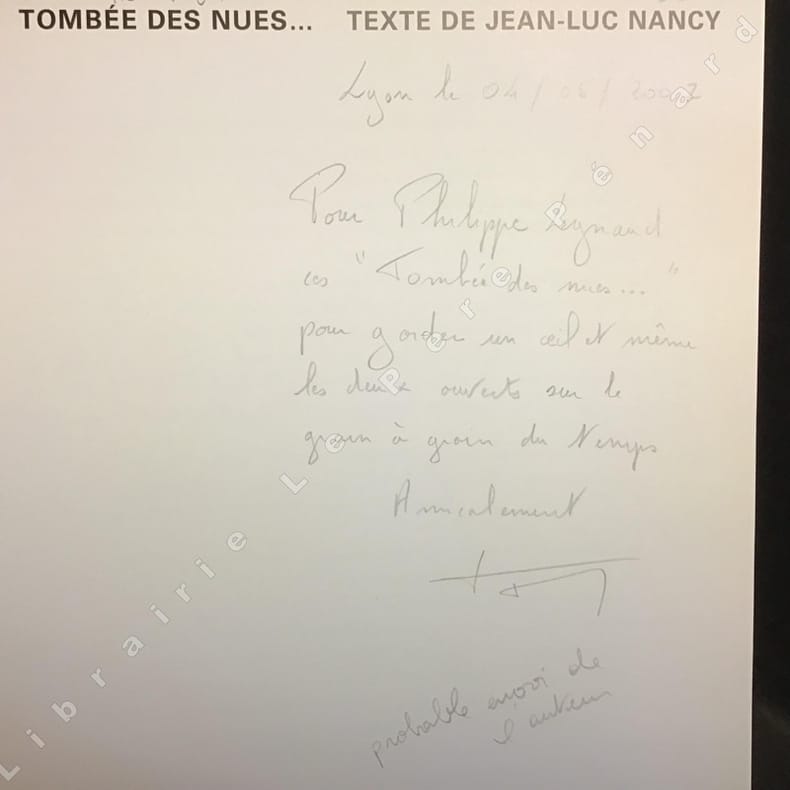 TOMBÉE DES NUES... TEXTE DE JEAN-LUC NANCY
Lyon le 04/05/2007
Pour Philippe Reynaud
ces "Tombée des nues..."
pour garder un œil et même
les deux ouverts sur le
grain à grain du temps
Amicalement
probable envoi de
l'auteur
Librairie Le Pérénard